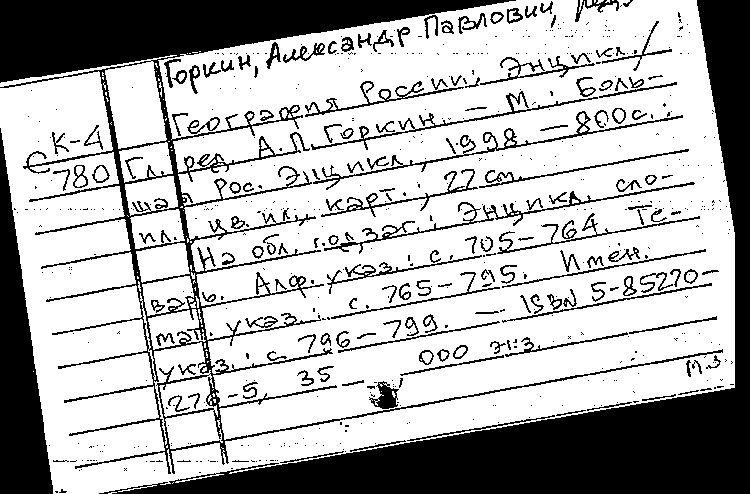 Горкин, Александр Павлович, ред.
География России: Энцикл./
Гл. ред. А.П. Горкин. — М.: Боль-
шая Рос. Энцикл., 1998. — 800с.:
ил., цв. ил., карт.; 27 см.
На обл. подзаг.: Энцикл. сло-
варь. Алф. указ.: с. 705–764. Те-
мат. указ.: с. 765–795. Имен.
указ.: с 796–799. — ISBN 5-85270-
276-5, 35 000 экз.
М.З
К-4
С 780